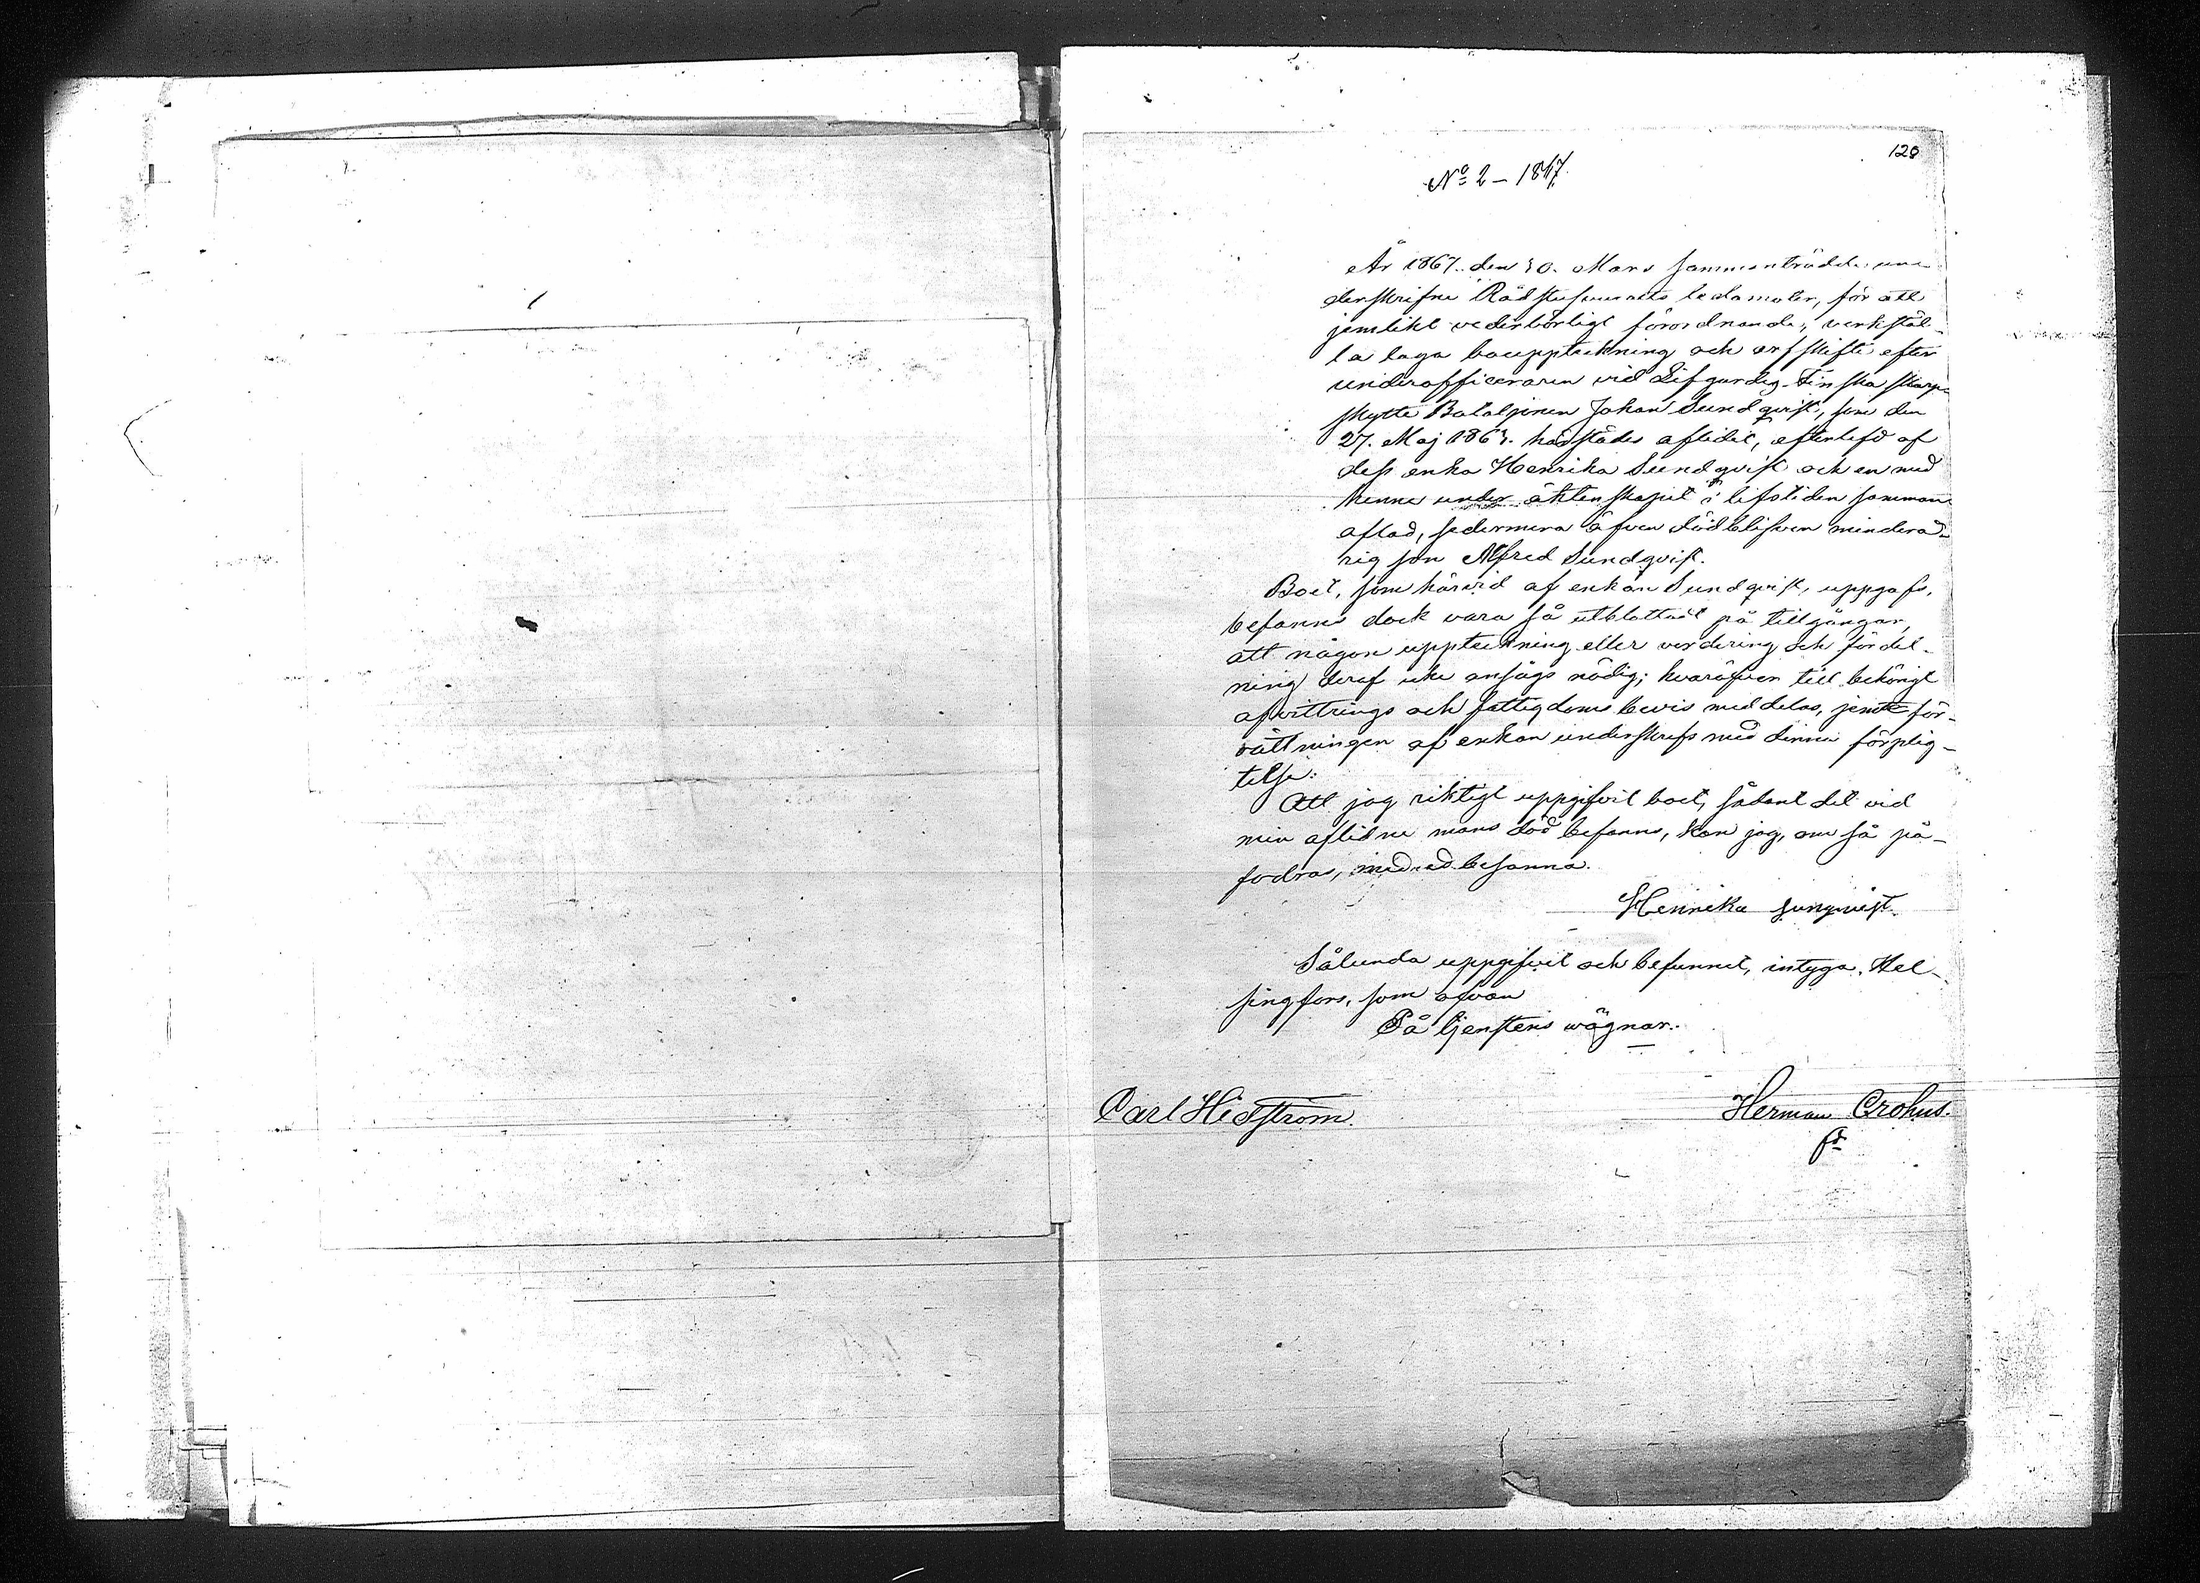 128
No 2 – 1867.
År 1867. den 30. Mars sammanträdde un-
derskrifne Rådstufurätts ledamöter, för att
jemlikt vederbörligt förordnande, verkstäl-
la laga bouppteckning och arfskifte efter
underofficeraren vid Lifgardets Finska skarp-
skytte Bataljonen Johan Sundqvist, som den
27. Maj 1863. härstädes aflidit, efterlefd af
dess enka Henrika Sundqvist och en med
henne under äktenskapet i lifstiden samman-
aflad, sedermera äfven död blifven minderå-
rig son Alfred Sundqvist.
Boet, som härvid af enkan Sundqvist, uppgafs,
befanns dock vara så utblottadt på tillgångar,
att någon uppteckning eller värdering och fördel-
ning deraf icke ansågs nödig; hvaröfver till behörigt
afvittrings och fattigdoms bevis meddelas, jemte för-
rättningen af enkan underskrefs med denna förplig-
telse:
Att jag riktigt uppgifvit boet, sådant det vid
min aflidne mans död befanns, kan jag, om så på-
fodras, med ed besanna.
Henrika sunqvist.
Sålunda uppgifvit och befunnit, intyga. Hel-
singfors, som ofvan
På tjenstens vägnar.
Carl Hidström.
Herman Crohns.